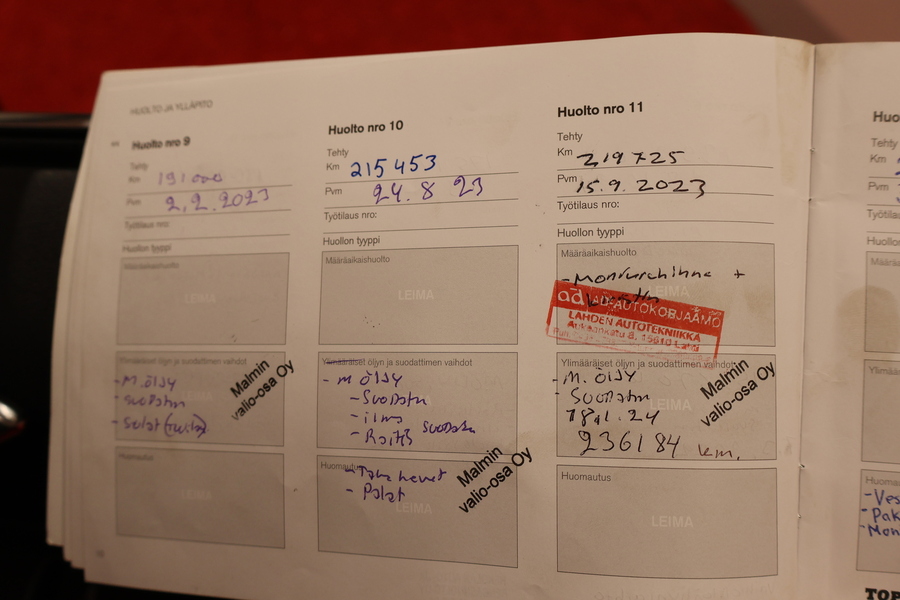 HUOLTO JA YLLÄPITO
Huolto nro 9
Tehty
Km 191 000
Pvm 2.2.2023
Työtilaus nro:
Huollon tyyppi
Määräaikaishuolto
LEIMA
Ylimääräiset öljyn ja suodattimen vaihdot
- M. ÖLJY
- suodatin
Malmin
valio-osa Oy
Huomautus
Huolto nro 10
Tehty
Km 215 453
Pvm 24. 8 23
Työtilaus nro:
Huollon tyyppi
Määräaikaishuolto
LEIMA
Ylimääräiset öljyn ja suodattimen vaihdot
- M ÖLJY
- Suodatin
- ilma
- Raitis Suodatin
Huomautus
- Palat
LEIMA
Malmin
valio-osa Oy
Huolto nro 11
Tehty
Km 219 725
Pvm 15.9. 2023
Työtilaus nro:
Huollon tyyppi
Määräaikaishuolto
LEIMA
ad AD-AUTOKORJAAMO
LAHDEN AUTOTEKNIIKKA
Ylimääräiset öljyn ja suodattimen vaihdot
- M. ÖLJY
Suodatin
LEIMA
236184 km.
Malmin
valio-osa Oy
Huomautus
LEIMA
Huo
Tehty
Km
Pvm
Työtila
Huollon
Määrä
Ylimää
Huoma
- Ves
- Pak
- Mon
TOP